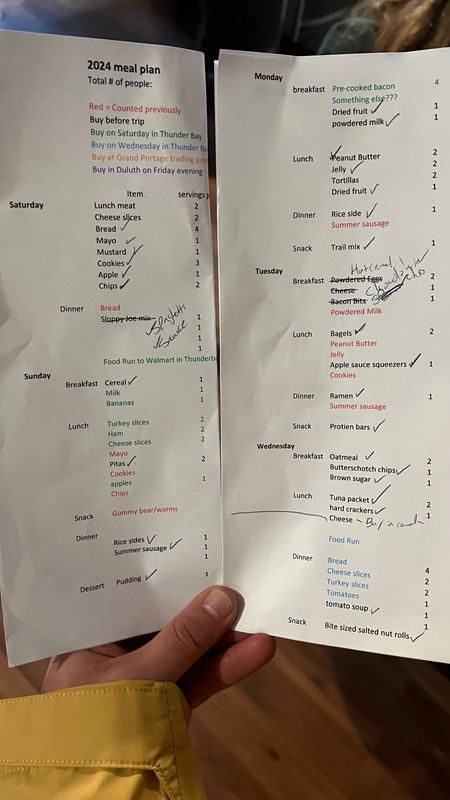 2024 meal plan
Total # of people:
Red = Counted previously
Buy before trip
Buy on Saturday in Thunder Bay
Buy on Wednesday in Thunder Ba
Buy at Grand Portage trading pos
Buy in Duluth on Friday evening
Item servings p
Saturday Lunch meat 2
Cheese slices 2
Bread 4
Mayo 1
Mustard 1
Cookies 3
Apple 1
Chips 2
Dinner Bread
Sloppy Joe mix 1
Spaghetti 1
Sauce 1
1
Food Run to Walmart in Thunderba
Sunday Breakfast Cereal 1
Milk 1
Bananas 1
Lunch Turkey slices 2
Ham 2
Cheese slices 2
Mayo
Pitas 2
Cookies
apples 1
Chips
Snack Gummy bear/worms
Dinner Rice sides 1
Summer sausage 1
1
Dessert Pudding 1
Monday
breakfast Pre-cooked bacon 4
Something else???
Dried fruit 1
powdered milk 1
Lunch Peanut Butter 2
Jelly 2
Tortillas 2
Dried fruit 1
Dinner Rice side 1
Summer sausage
Snack Trail mix 1
Tuesday Hot cereal
Breakfast Powdered Eggs 2
Cheese 1
Bacon Bits 1
Powdered Milk
Lunch Bagels 2
Peanut Butter
Jelly
Apple sauce squeezers 1
Cookies
Dinner Ramen 1
Summer sausage
Snack Protien bars
Wednesday
Breakfast Oatmeal
Butterschotch chips 2
Brown sugar 1
Lunch Tuna packet
hard crackers 2
Cheese - Buy in 1
Food Run
Dinner Bread
Cheese slices 4
Turkey slices 2
Tomatoes 2
tomato soup 1
1
Snack Bite sized salted nut rolls 1